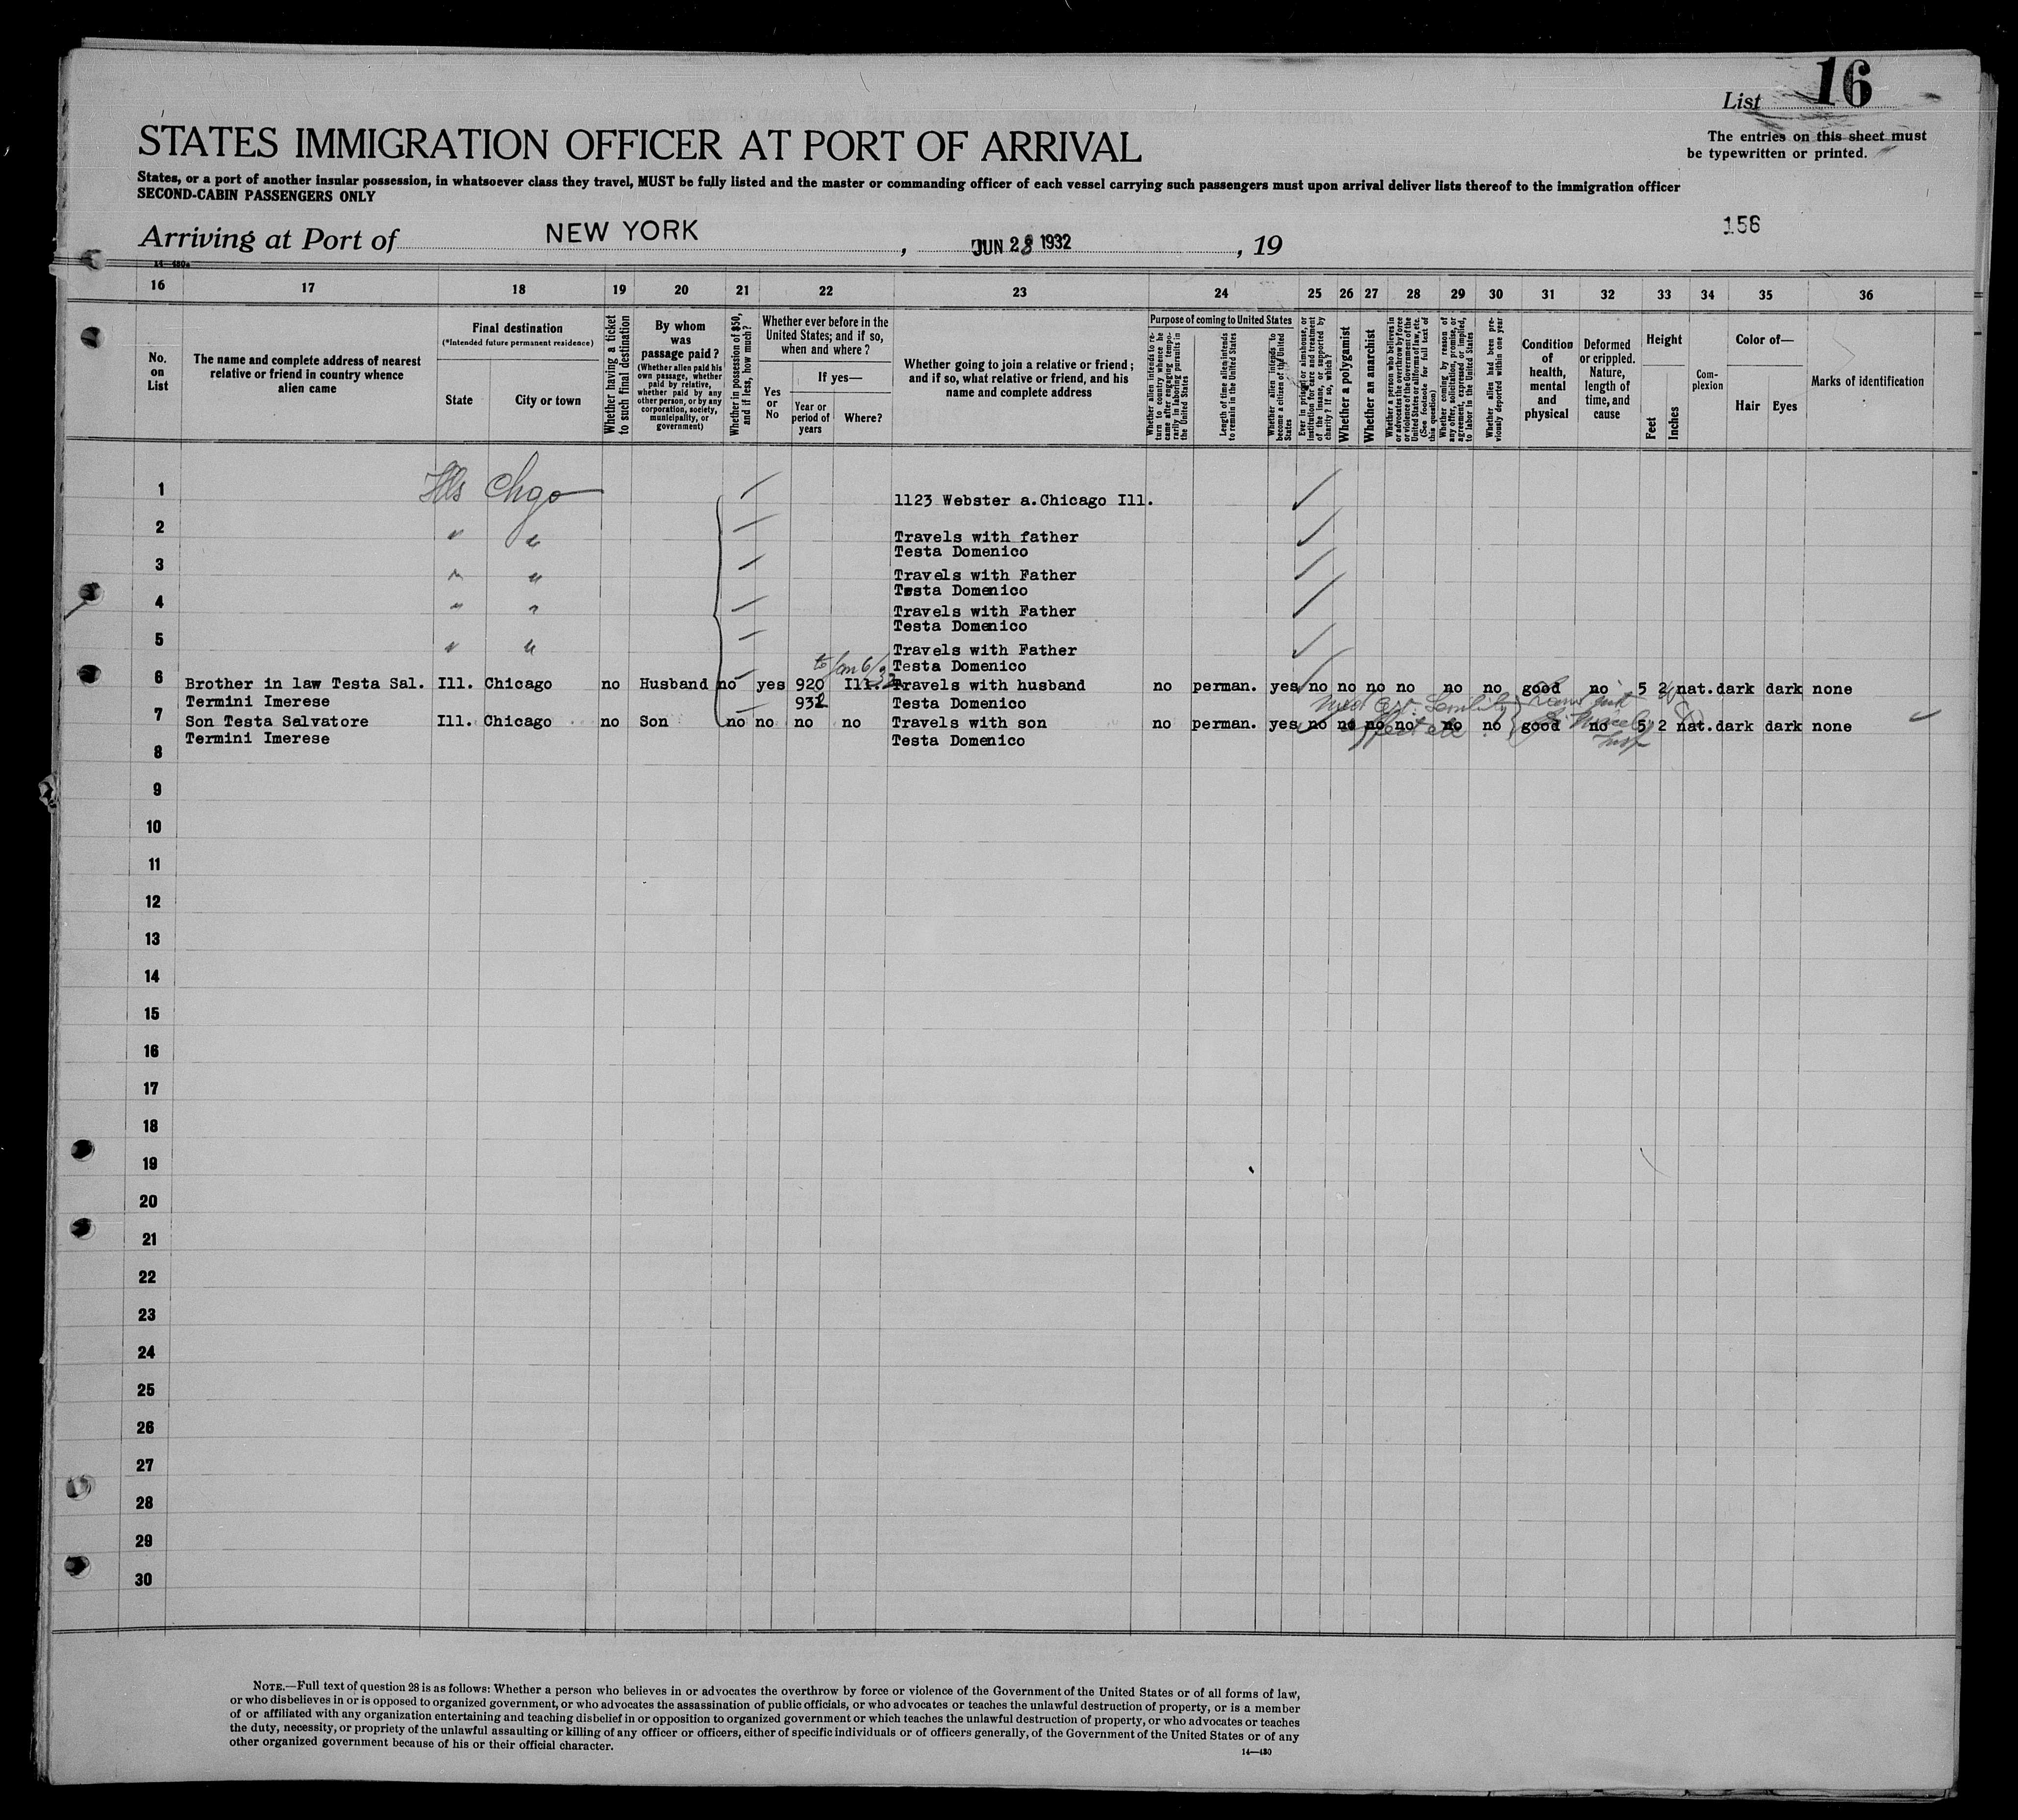 List 16
The entries on this sheet must
be typewritten or printed.
STATES IMMIGRATION OFFICER AT PORT OF ARRIVAL
States, or a port of another insular possession, in whatsoever class they travel, MUST be fully listed and the master or commanding officer of each vessel carrying such passengers must upon arrival deliver lists thereof to the immigration officer
SECOND-CABIN PASSENGERS ONLY
156
Arriving at Port of NEW YORK, JUN 28 1932, 19
14—480a
16 17 18 19 20 21 22 23 24 25 26 27 28 29 30 31 32 33 34 35 36
No. on List
The name and complete address of nearest relative or friend in country whence alien came
Final destination
(*Intended future permanent residence)
State
City or town
Whether having a ticket to such final destination
By whom was passage paid?
(Whether alien paid his own passage, whether paid by relative, whether paid by any other person, or by any corporation, society, municipality, or government)
Whether in possession of $50, and if less, how much?
Whether ever before in the United States; and if so, when and where?
Yes or No
If yes—
Year or period of years
Where?
Whether going to join a relative or friend; and if so, what relative or friend, and his name and complete address
Purpose of coming to United States
Whether alien intends to return to country whence he came after engaging temporarily in laboring pursuits in the United States
Length of time alien intends to remain in the United States
Whether alien intends to become a citizen of the United States
Ever in prison or almshouse, or institution for care and treatment of the insane, or supported by charity? If so, which?
Whether a polygamist
Whether an anarchist
Whether a person who believes in or advocates the overthrow by force or violence of the Government of the United States or all forms of law, etc. (See footnote for full text of this question)
Whether coming by reason of any offer, solicitation, promise, or agreement, expressed or implied, to labor in the United States
Whether alien had been previously deported within one year
Condition of health, mental and physical
Deformed or crippled. Nature, length of time, and cause
Height
Feet
Inches
Complexion
Color of—
Hair
Eyes
Marks of identification
1 Ills Chgo 1123 Webster a.Chicago Ill.
2 " " Travels with father
Testa Domenico
3 " " Travels with Father
Testa Domenico
4 " " Travels with Father
Testa Domenico
5 " " Travels with Father
Testa Domenico
6 Brother in law Testa Sal. Ill. Chicago no Husband no yes 920 Ill. Travels with husband no perman. yes no no no no no no good no 5 2 nat. dark dark none
Termini Imerese 932 Testa Domenico
7 Son Testa Salvatore Ill. Chicago no Son no no no no Travels with son no perman. yes no no no no no no good no 5 2 nat. dark dark none
Termini Imerese Testa Domenico
8
9
10
11
12
13
14
15
16
17
18
19
20
21
22
23
24
25
26
27
28
29
30
NOTE.—Full text of question 28 is as follows: Whether a person who believes in or advocates the overthrow by force or violence of the Government of the United States or of all forms of law,
or who disbelieves in or is opposed to organized government, or who advocates the assassination of public officials, or who advocates or teaches the unlawful destruction of property, or is a member
of or affiliated with any organization entertaining and teaching disbelief in or opposition to organized government or which teaches the unlawful destruction of property, or who advocates or teaches
the duty, necessity, or propriety of the unlawful assaulting or killing of any officer or officers, either of specific individuals or of officers generally, of the Government of the United States or of any
other organized government because of his or their official character.
14—480